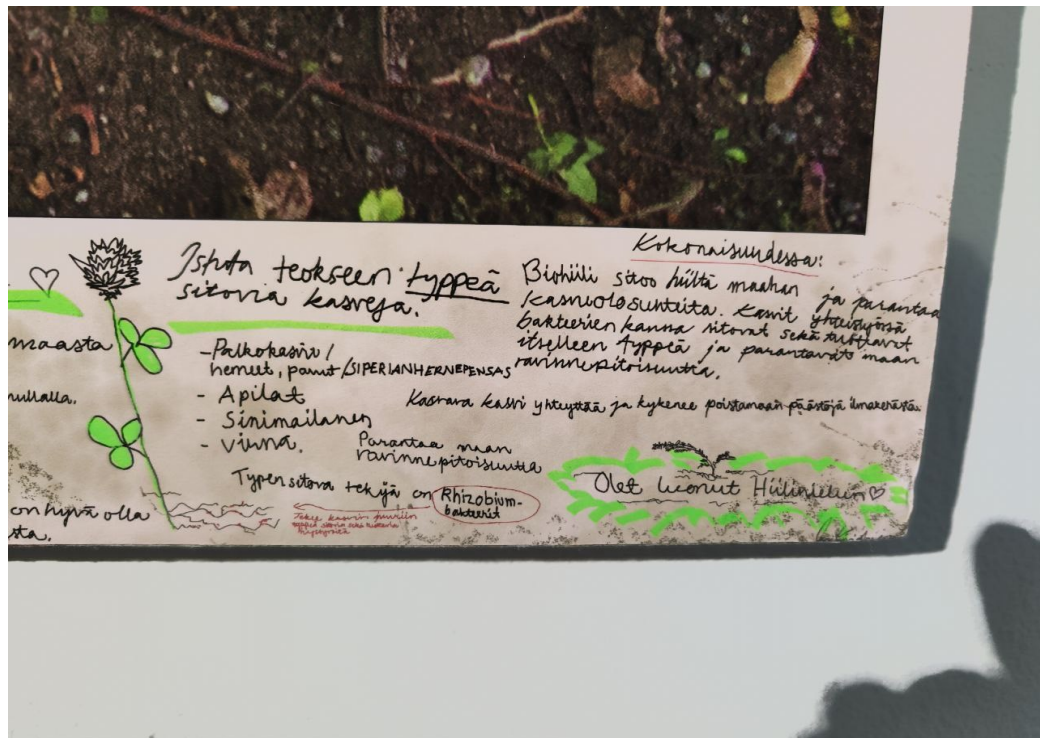 maasta
nullalla.
on hyvä olla
sta.
Istuta teokseen typpeä
sitovia kasveja.
-Palkokasvit/
herneet, pavut/SIPERIANHERNEPENSAS
- Apilat
- Sinimailanen
- Virna.
Parantaa maan
ravinnepitoisuutta
Typensitova tekijä on Rhizobium-
bakteerit
Tekee kasvin juuriin
Kokonaisuudessa:
Biohiili sitoo hiiltä maahan ja parantaa
kasvuolosuhteita. Kasvit yhteistyössä
bakteerien kanssa sitovat sekä tuottavat
itselleen typpeä ja parantavat maan
ravinnepitoisuutta.
Kasvava kasvi yhteyttää ja kykenee poistamaan päästöjä ilmakehästä.
Olet luonut Hiilinielun